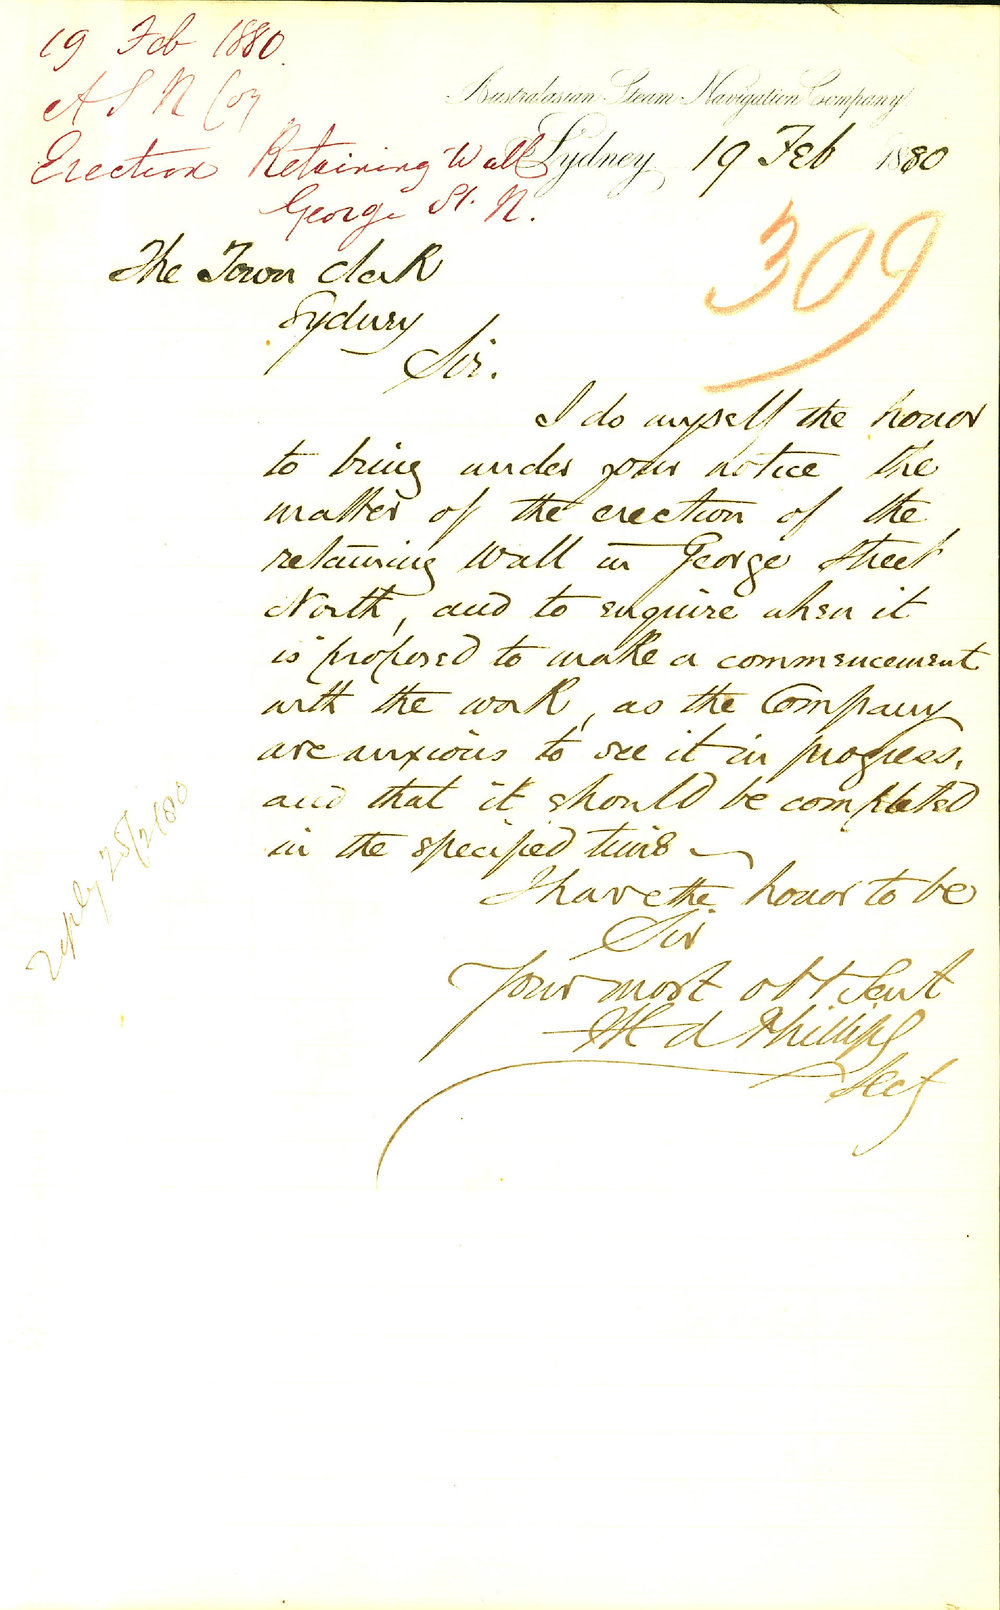 19 Feb 1880.
A S N Coy
Erection Retaining Wall
George St. N.
Australasian Steam Navigation Company
Sydney 19 Feb 1880
309
The Town Clerk
Sydney
Sir.
I do myself the honor
to bring under your notice the
matter of the erection of the
retaining wall in George Street
North, and to enquire when it
is proposed to make a commencement
with the work, as the Company
are anxious to see it in progress,
and that it should be completed
in the specified time
I have the honor to be
Sir
Your most obt Servt
Phillips
Secy
reply 25/2/80